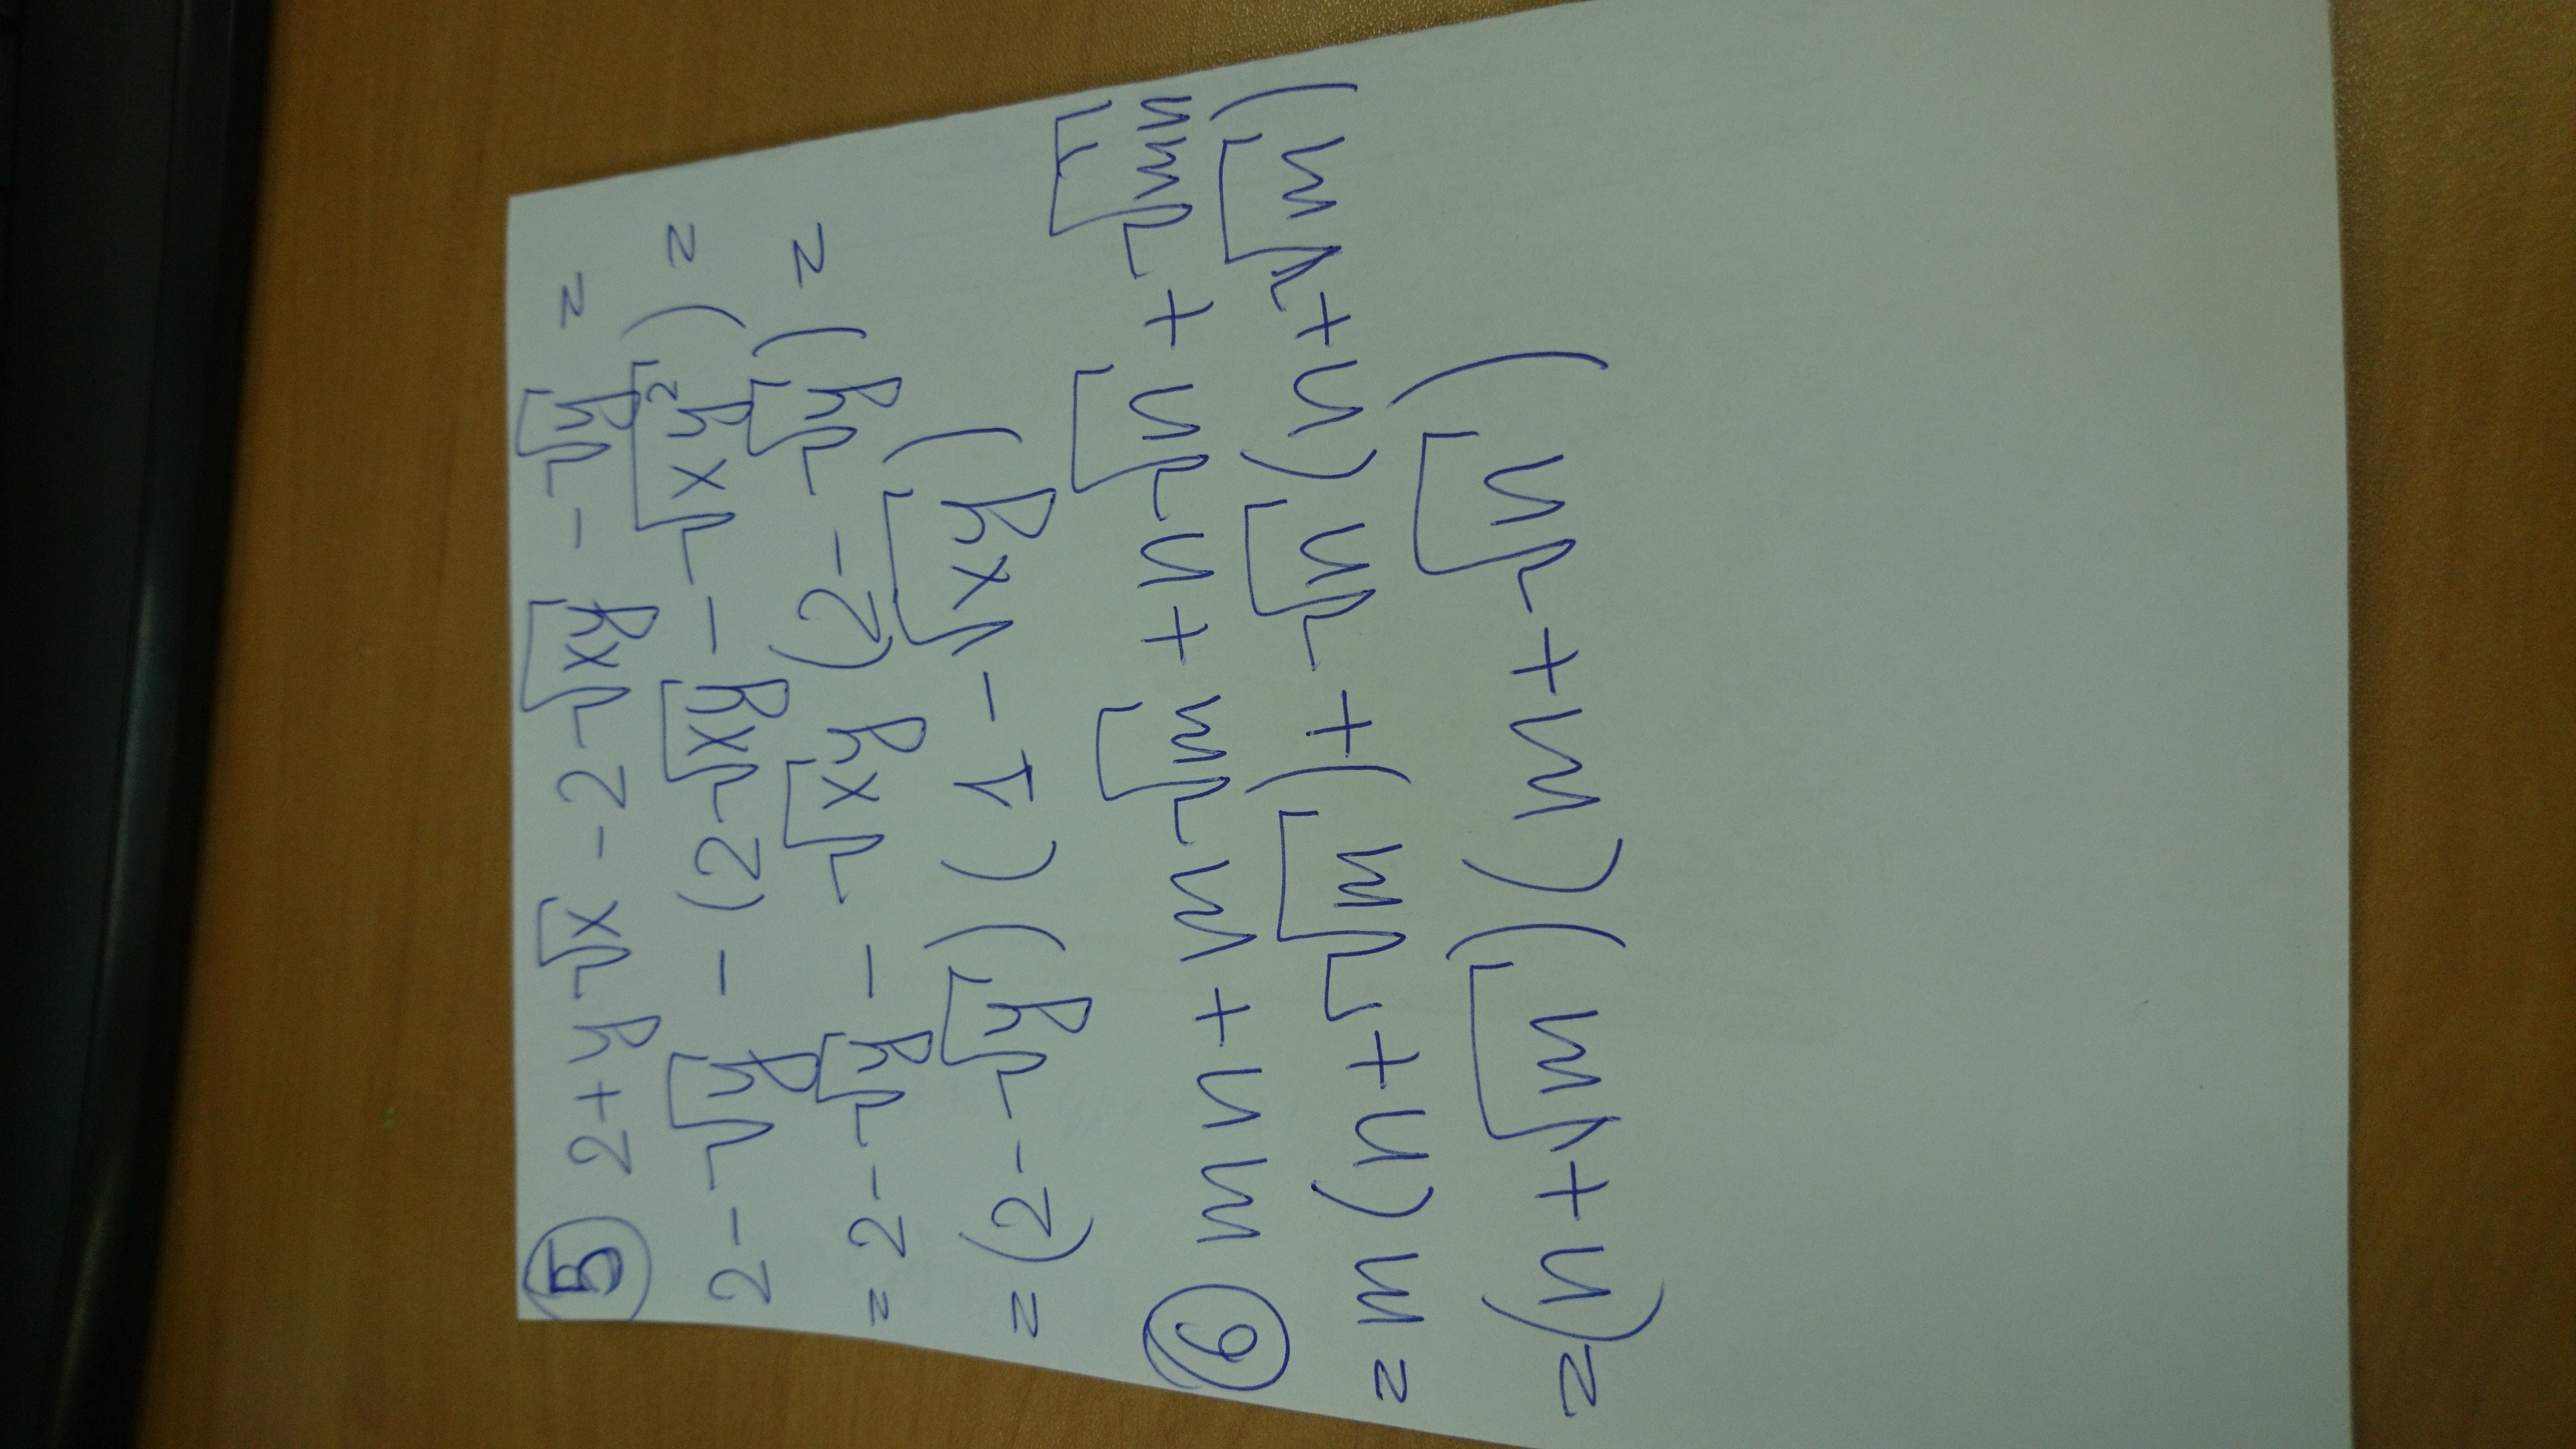 ⑤ 2+y√x - 2√xy - √y =
2-√y - (2√xy - √xy²) =
= 2-√y - √xy (2-√y) =
= (2-√y)(1-√xy)
⑥ mn + m√m + n√n + √mn
= m(n+√m) + √n(n+√m)
= (n+√m)(m+√n)